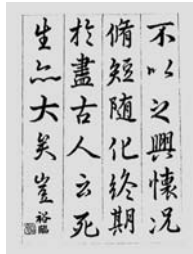 不以之興懷况
脩短隨化終期
扵盡古人云死
生亦大矣豈
裕臨